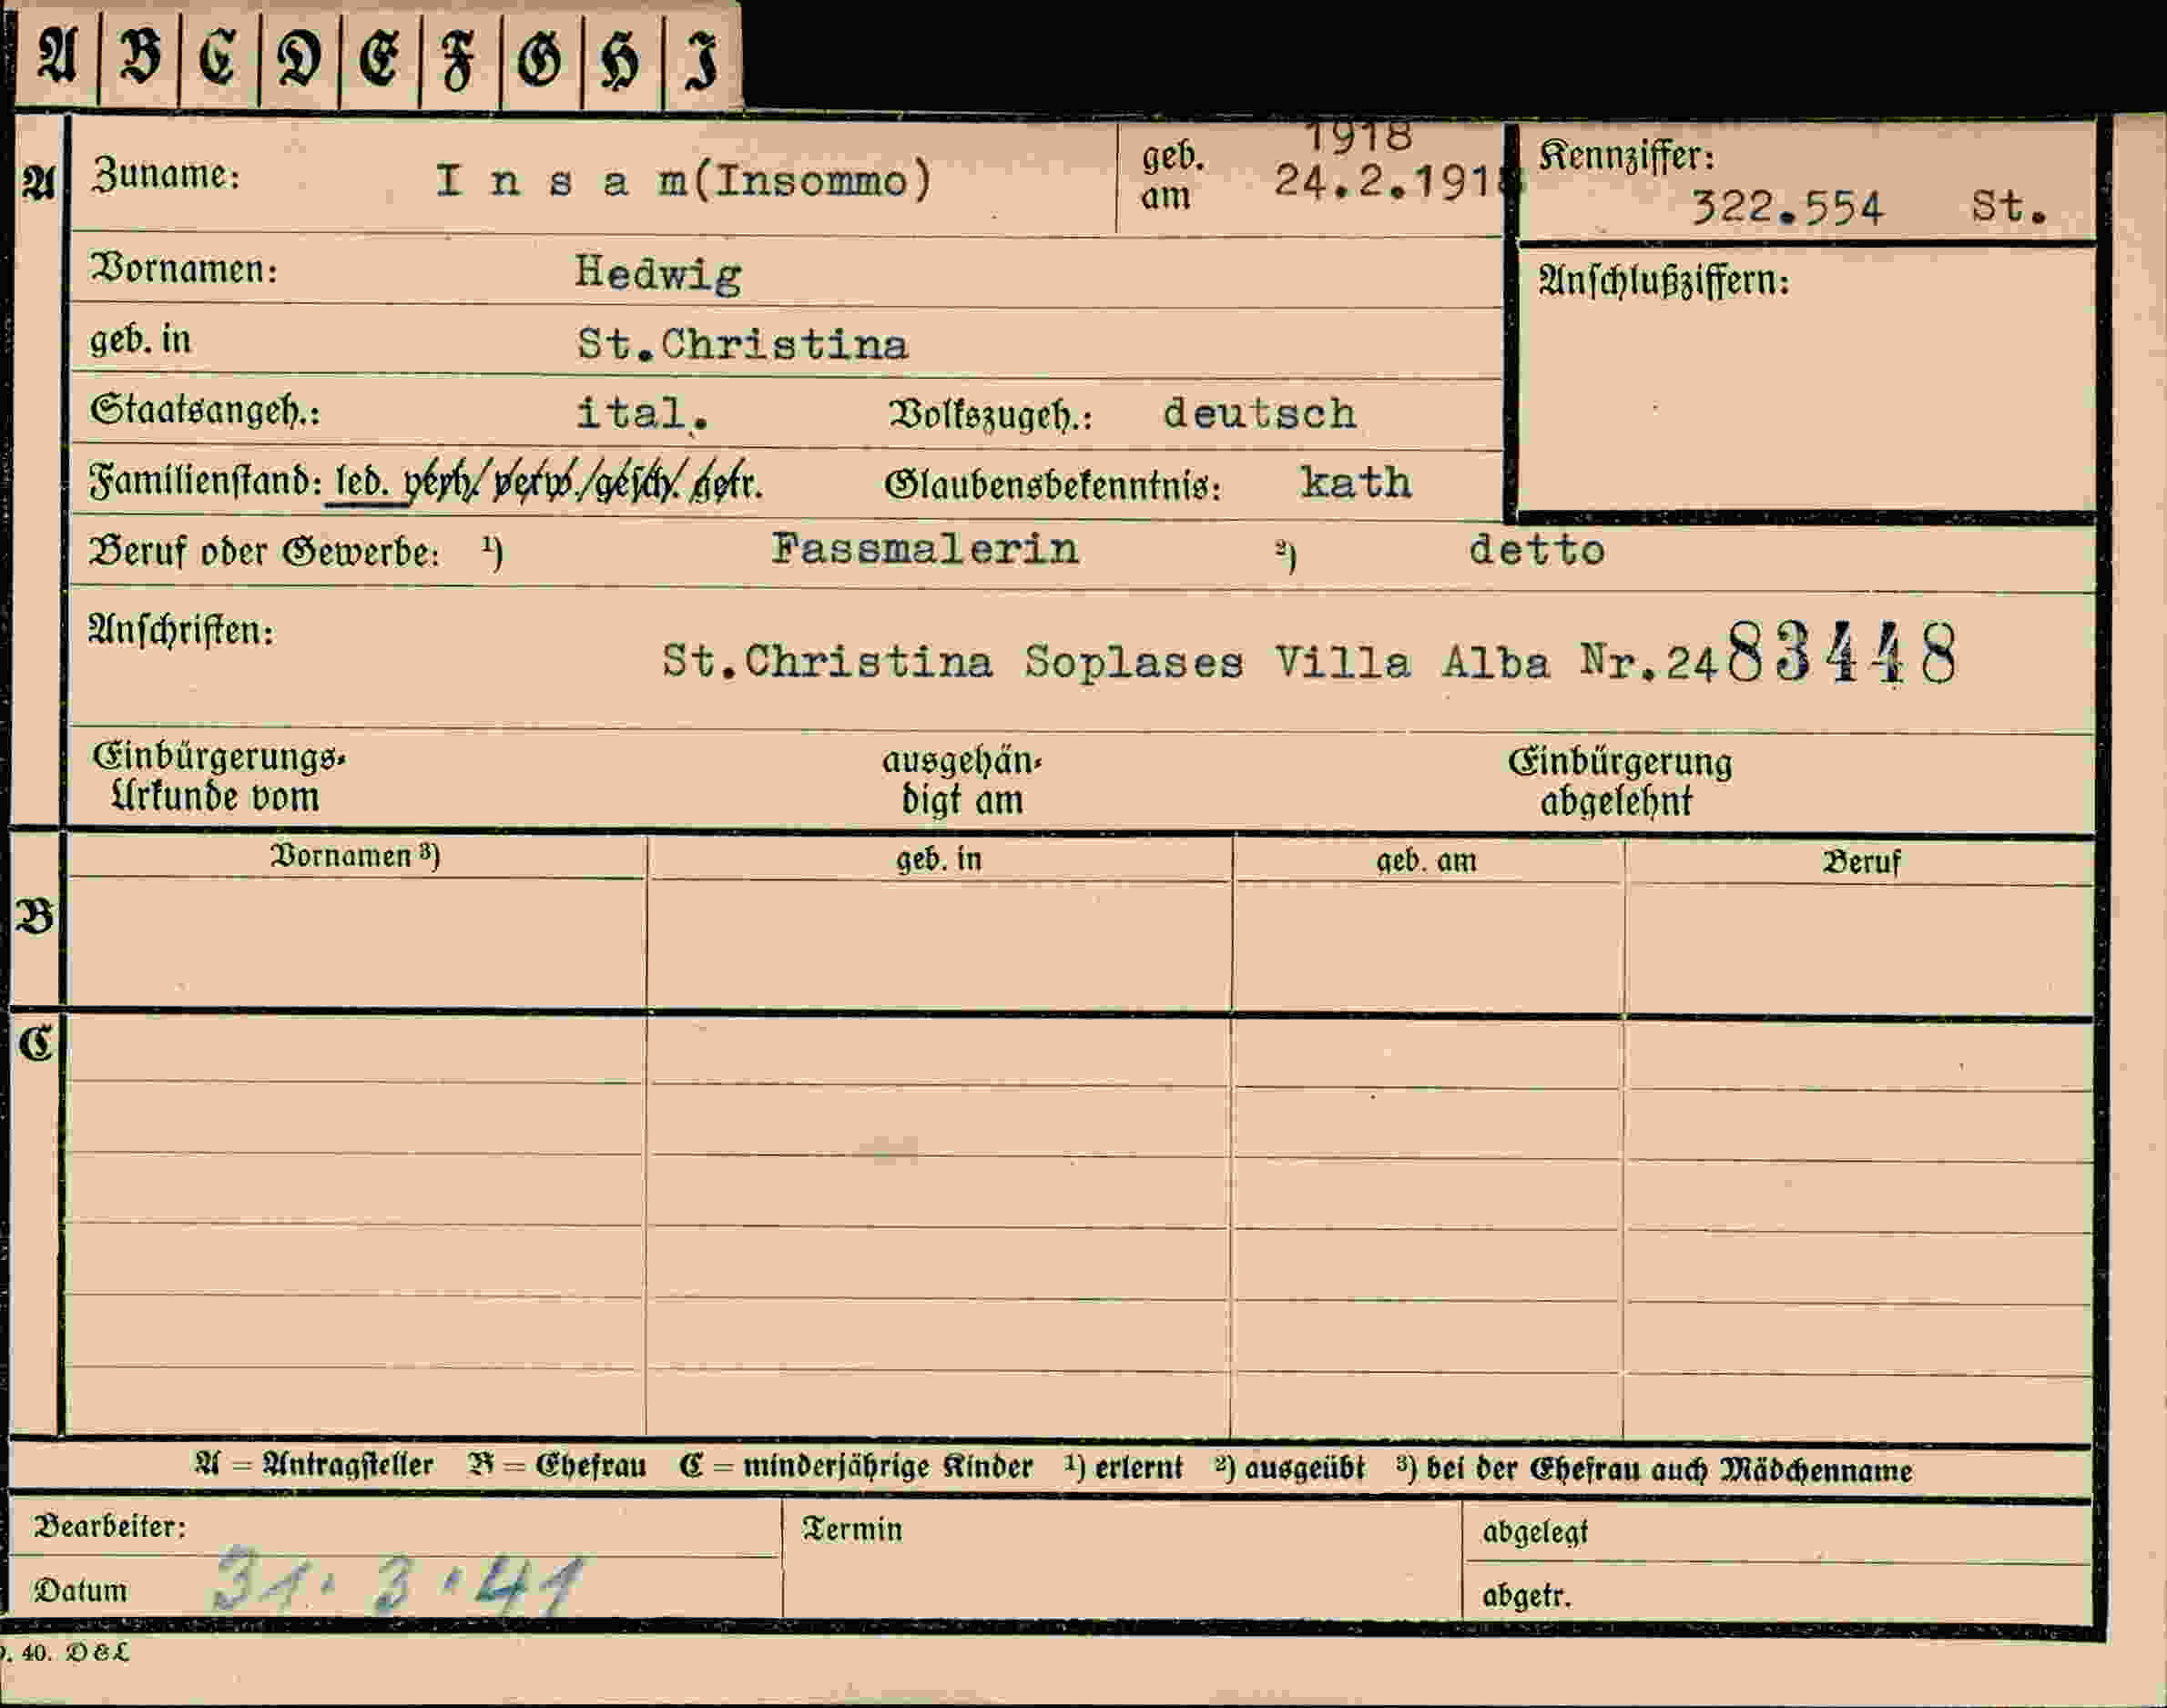 A B C D E F G H I
A Zuname: I n s a m(Insommo) geb. am 24.2.1918 1918 Kennziffer: 322.554 St.
Vornamen: Hedwig Anschlußziffern:
geb. in St.Christina
Staatsangeh.: ital. Volkszugeh.: deutsch
Familienstand: led. verh./verw./gesch./getr. Glaubensbekenntnis: kath
Beruf oder Gewerbe: ¹) Fassmalerin ²) detto
Anschriften: St.Christina Soplases Villa Alba Nr.24 83448
Einbürgerungs- ausgehän- Einbürgerung
Urkunde vom digt am abgelehnt
Vornamen ³) geb. in geb. am Beruf
B
C
A = Antragsteller B = Ehefrau C = minderjährige Kinder ¹) erlernt ²) ausgeübt ³) bei der Ehefrau auch Mädchenname
Bearbeiter: Termin abgelegt
Datum 31. 3. 41 abgetr.
. 40. D&L